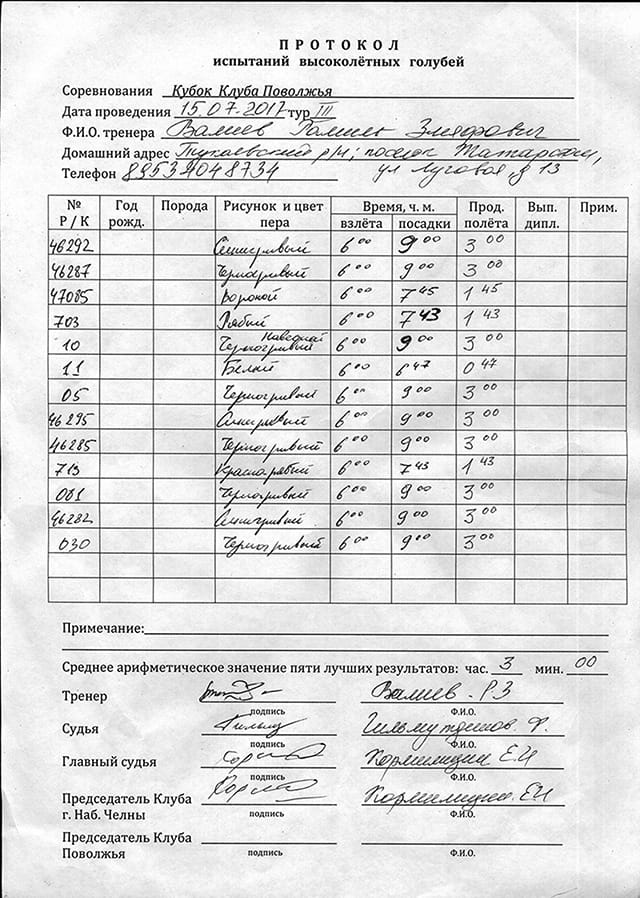 ПРОТОКОЛ
испытаний высоколётных голубей
Соревнования Кубок Клуба Поволжья
Дата проведения 15.07.2017 тур III
Ф.И.О. тренера Валиев Рамиль Зиярович
Домашний адрес Тукаевский р/н; посёлок Татарстан,
Телефон 89534048734 ул Луговая, д 13
№ Р / К Год рожд. Порода Рисунок и цвет пера Время, ч. м. взлёта посадки Прод. полёта Вып. дипл. Прим.
46292 Синегривый 6 00 9 00 3 00
46287 Черногривый 6 00 9 00 3 00
47085 Вороной 6 00 7 45 1 45
703 Рябий 6 00 7 43 1 43
10 Черногривый Наведной 6 00 9 00 3 00
11 Белый 6 00 6 47 0 47
05 Черногривый 6 00 9 00 3 00
46295 Синегривый 6 00 9 00 3 00
46285 Черногривый 6 00 9 00 3 00
713 Краснорябий 6 00 7 43 1 43
001 Черногривый 6 00 9 00 3 00
46282 Синегривый 6 00 9 00 3 00
030 Черногривый 6 00 9 00 3 00
Примечание:
Среднее арифметическое значение пяти лучших результатов: час. 3 мин. 00
Тренер Валиев. Р.З
подпись Ф.И.О.
Судья Гильмутдинов. Ф.
подпись Ф.И.О.
Главный судья Кормилицин Е.И
подпись Ф.И.О.
Председатель Клуба Кормилицин. Е.И
г. Наб. Челны подпись Ф.И.О.
Председатель Клуба
Поволжья подпись Ф.И.О.